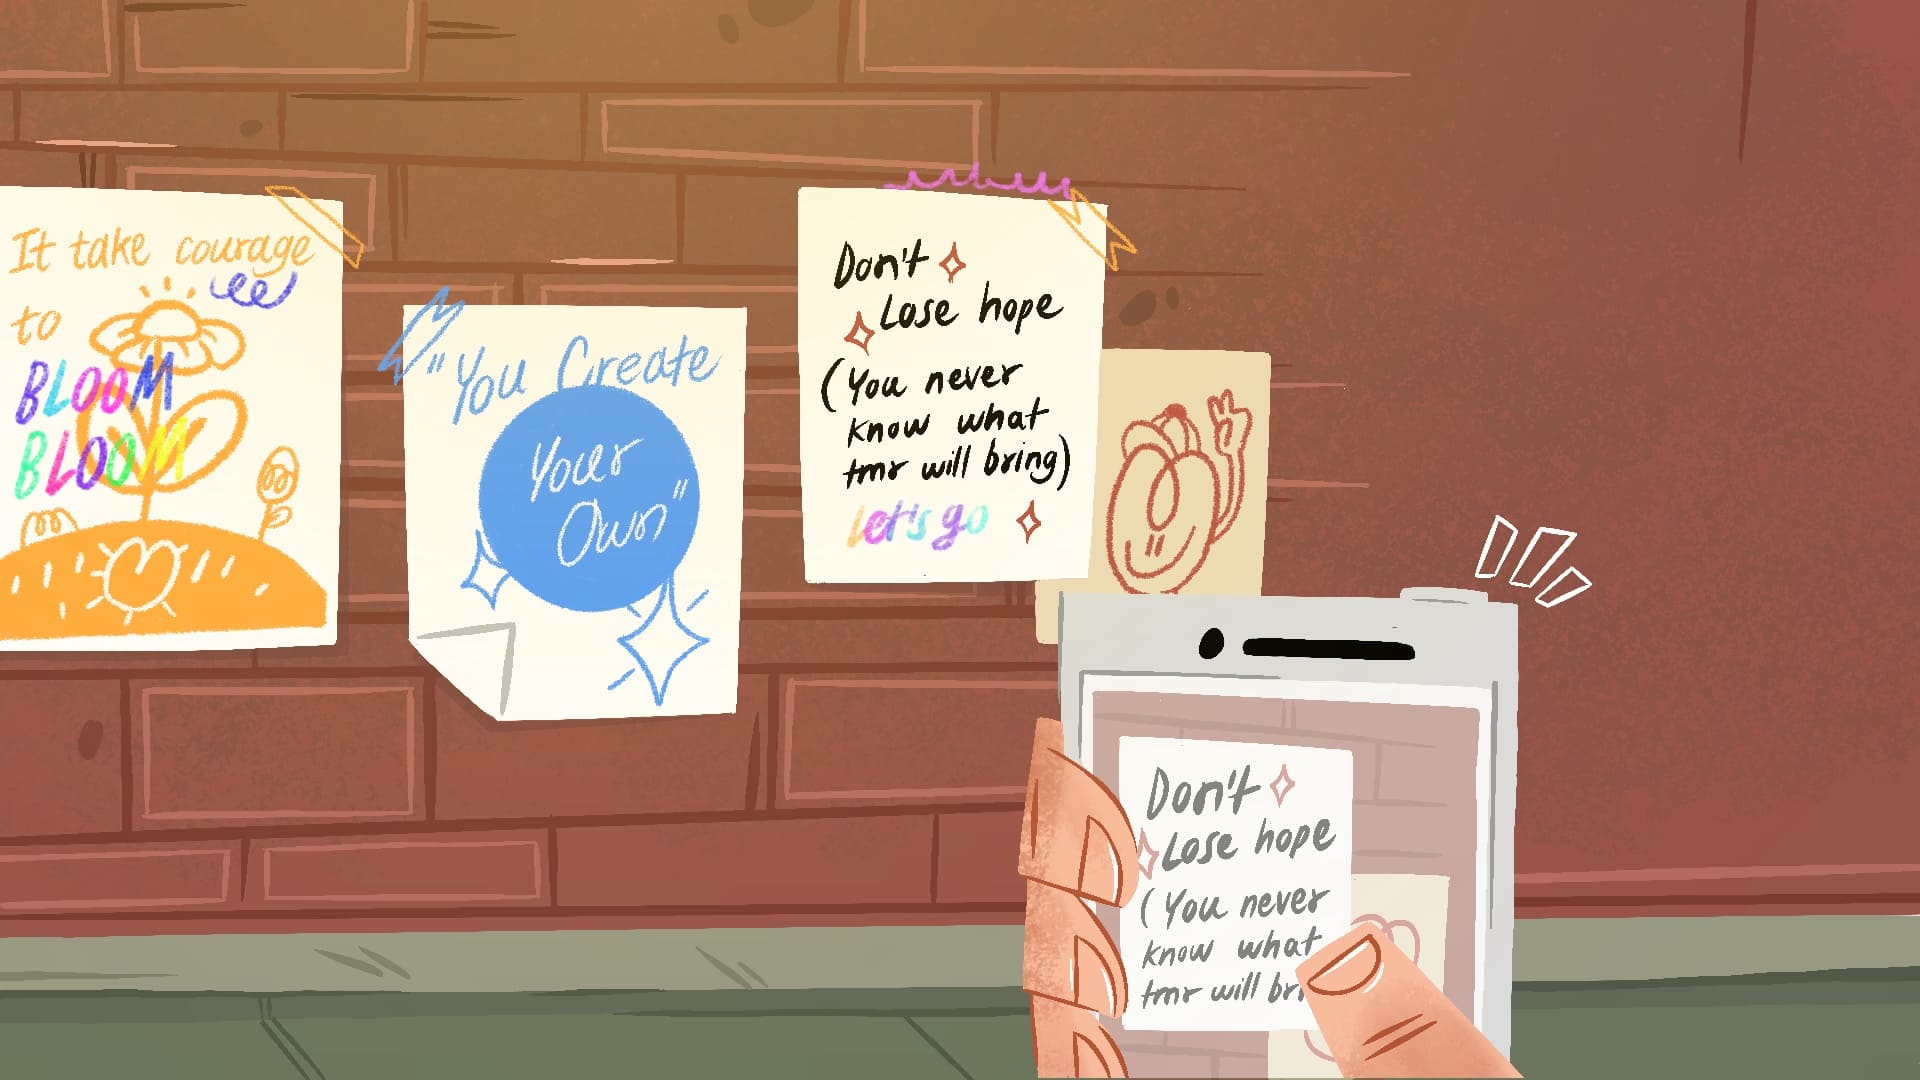 It take courage
to
BLOOM
BLOOM
"You Create
Your
Own"
Don't
Lose hope
(You never
know what
tmr will bring)
let's go
Don't
Lose hope
(You never
know what
tmr will bri